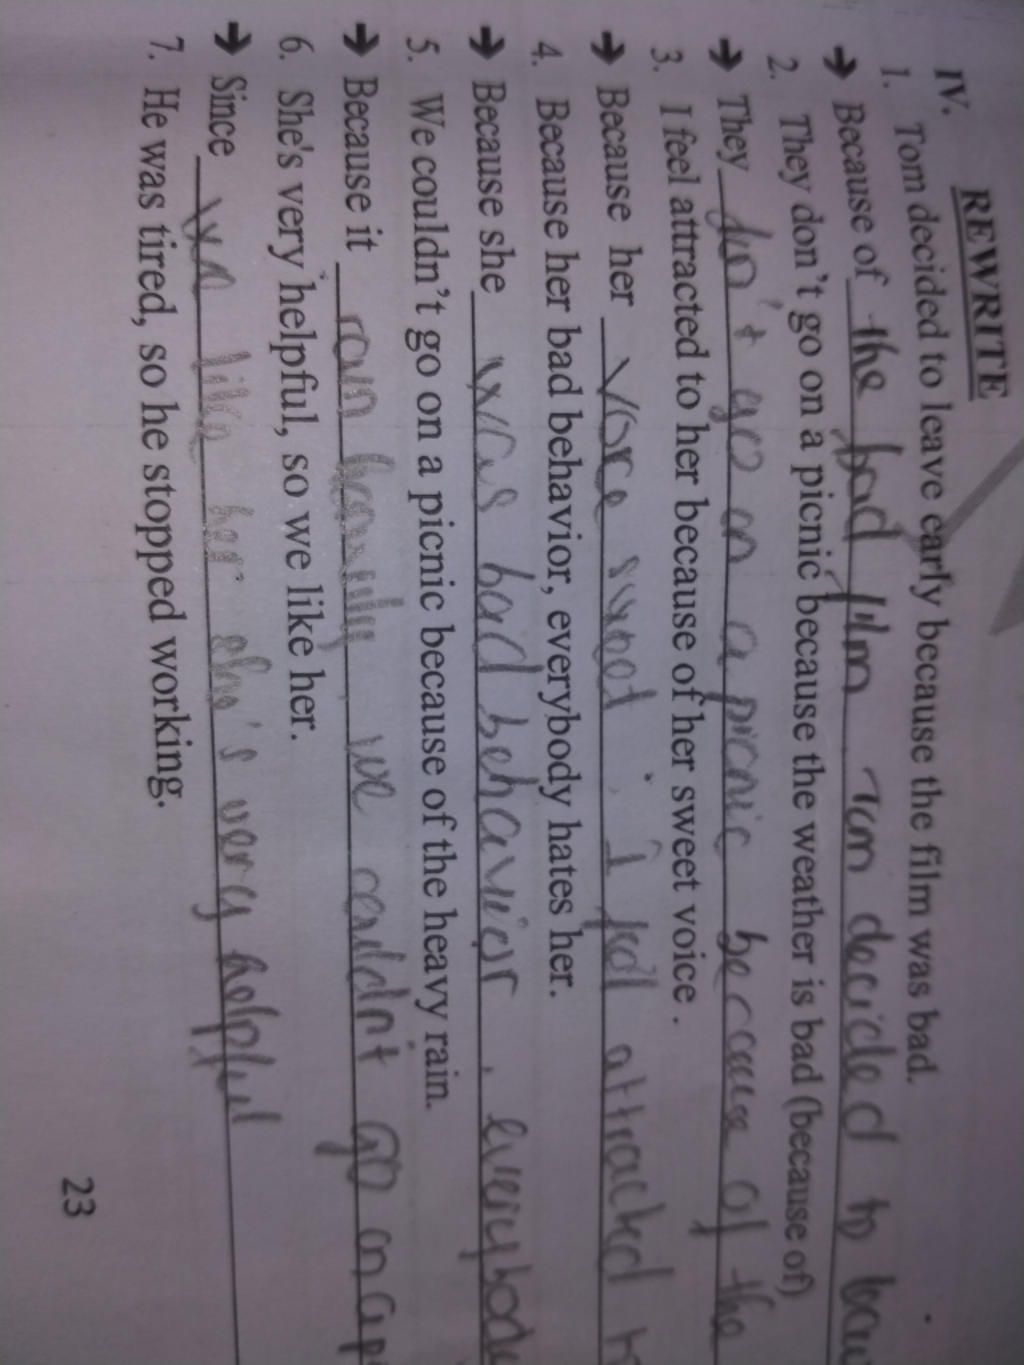 IV. REWRITE
1. Tom decided to leave early because the film was bad.
➔ Because of the bad film Tom decided to
2. They don't go on a picnic because the weather is bad (because of)
➔ They don't go on a picnic because of the
3. I feel attracted to her because of her sweet voice .
➔ Because her voice sweet , I feel attracted
4. Because her bad behavior, everybody hates her.
➔ Because she was bad behavior ,
5. We couldn't go on a picnic because of the heavy rain.
➔ Because it rain heavily we go on a
6. She's very helpful, so we like her.
➔ Since we like her she's very helpful
7. He was tired, so he stopped working.
23